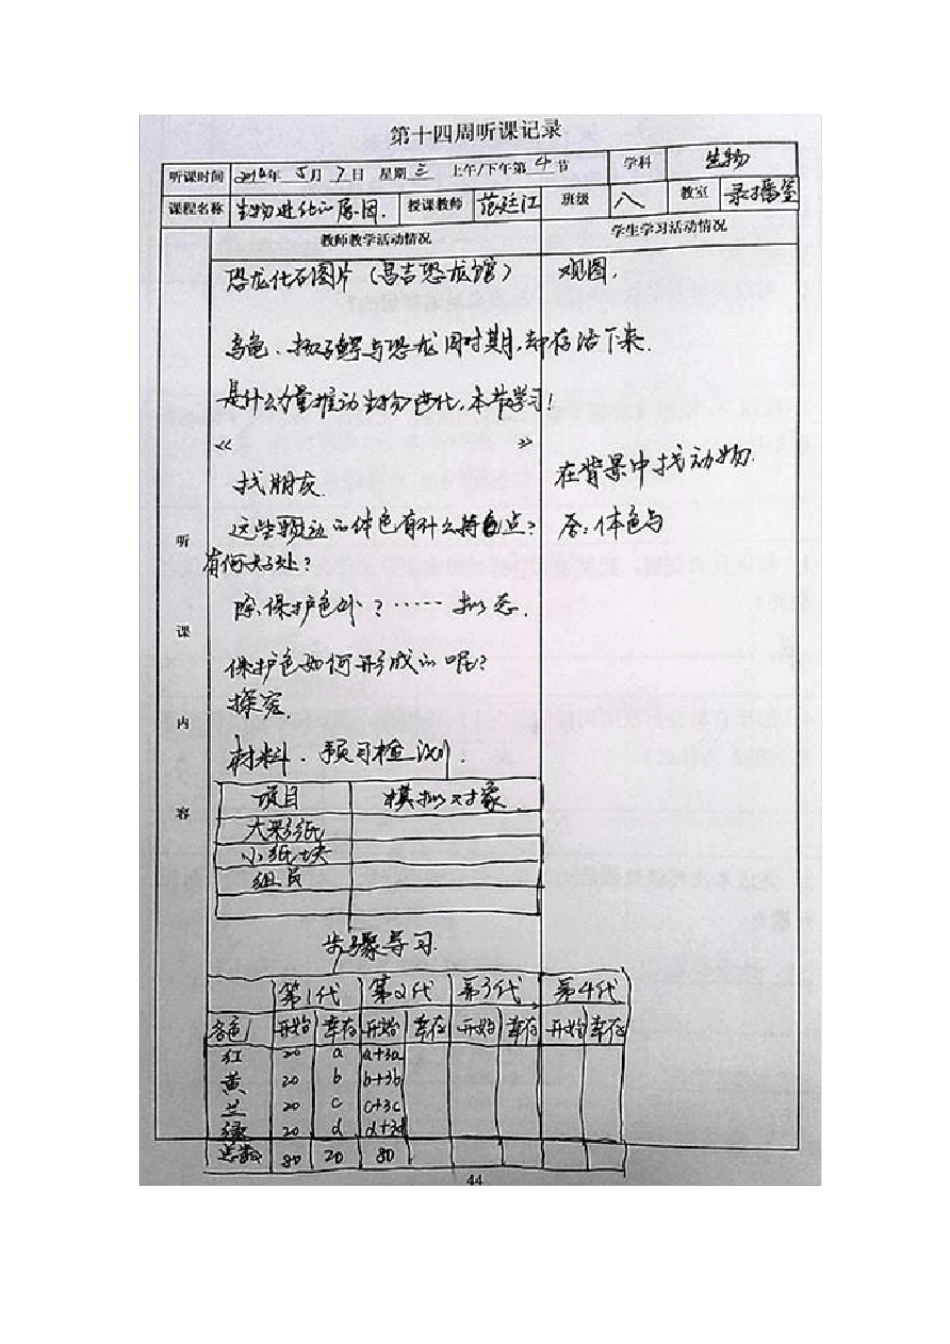 第十四周听课记录
听课时间 2014年 5月 7日 星期三 上午/下午第 4 节 学科 生物
课程名称 生物进化的原因. 授课教师 范廷江 班级 八 教室 录播室
教师教学活动情况 学生学习活动情况
恐龙化石图片（昌吉恐龙馆） 观图.
乌龟、扬子鳄与恐龙同时期,却存活下来.
是什么力量推动生物进化,本节学习!
《 》
找朋友. 在背景中找动物.
这些 的体色有什么特点? 答:体色与
有何好处?
除保护色外?……拟态.
保护色如何形成的呢?
探究.
材料.预习检测.
听课内容
项目 模拟对象
大彩纸
小纸块
组员
步骤导习.
第1代 第2代 第3代 第4代
各色 开始 幸存 开始 幸存 开始 幸存 开始 幸存
红 20 a a+3a
黄 20 b b+3b
兰 20 c c+3c
绿 20 d d+3d
总数 80 20 80
44